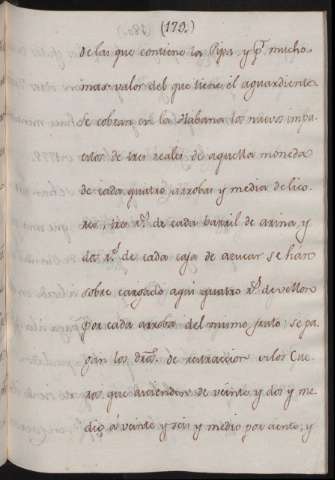 (179.)
de las que contiene la Pipa, y pr. mucho
mas valor del que tiene el aguardiente
Se cobran en la Habana los nuevos impu
estos de tres reales de aquella moneda
de cada quatro arrobas y media de lico
res, tres rs. de cada barril de arina, y
dos rs. de cada caja de azucar se han
sobre cargado aqui quatro rs. de vellon
por cada arroba del mismo fruto; se pa
gan los dros. de extraccion de los Cue
ros, que ascienden de veinte y dos y me
dio, á veinte y seis y medio por ciento, y